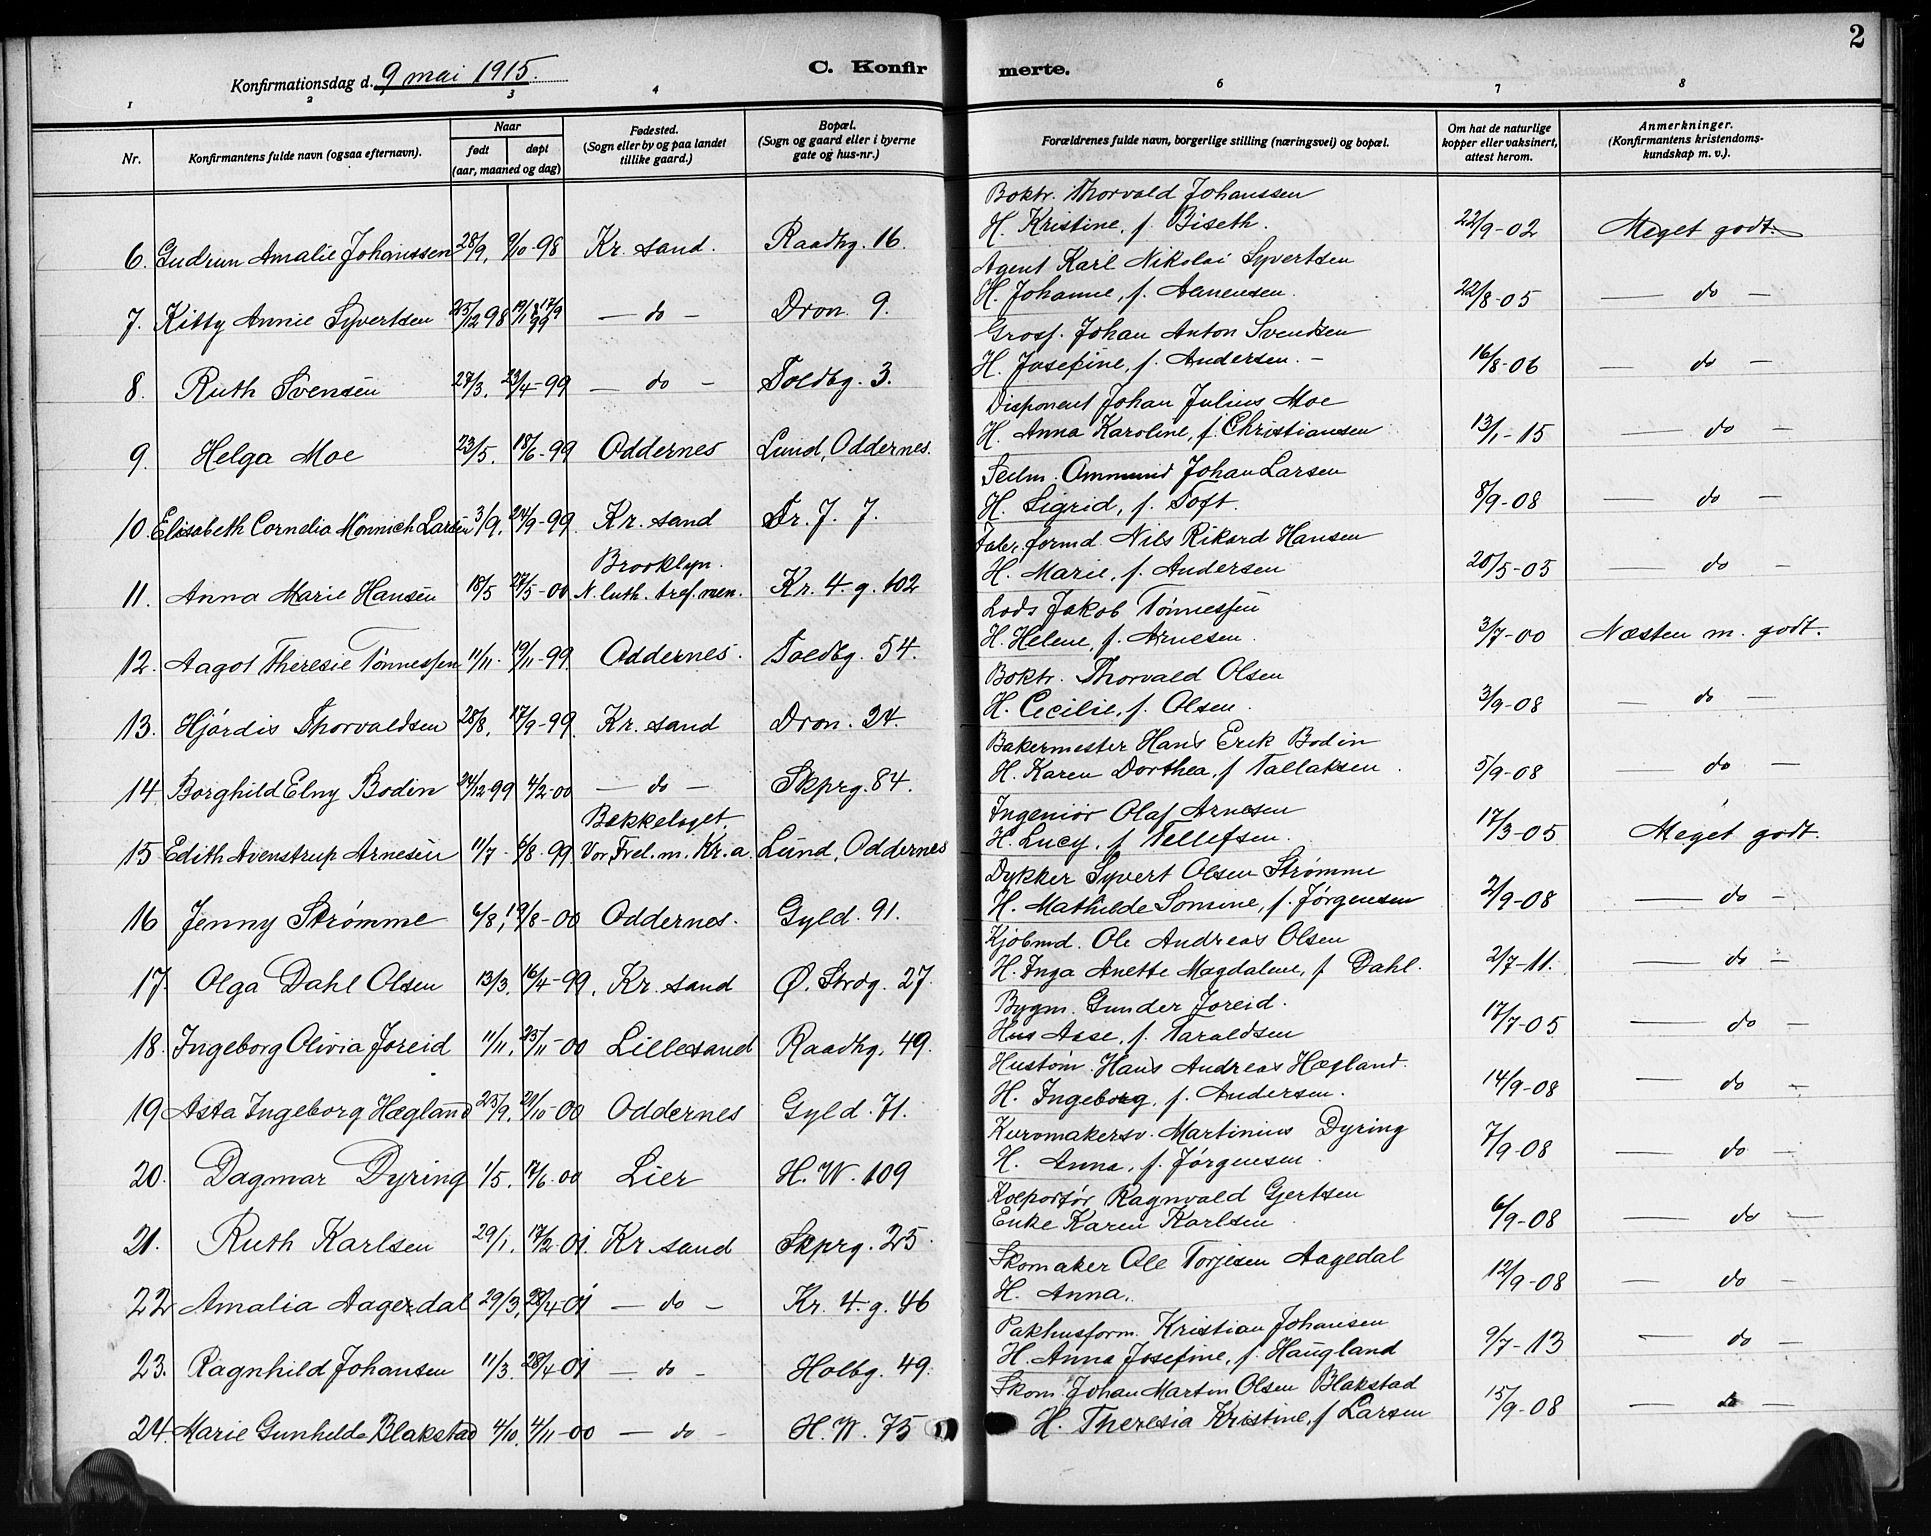 2
Konfirmationsdag d. 9 mai 1915.
C. Konfirmerte.
1 2 3 4 6 7 8
Nr.
Konfirmantens fulde navn (ogsaa efternavn).
Naar
født
døpt
(aar, maaned og dag)
Fødested.
(Sogn eller by og paa landet
tillike gaard.)
Bopæl.
(Sogn og gaard eller i byerne
gate og hus-nr.)
Forældrenes fulde navn, borgerlige stilling (næringsvei) og bopæl.
Om hat de naturlige
kopper eller vaksinert,
attest herom.
Anmerkninger.
(Konfirmantens kristendoms-
kundskap m. v.).
Boktr. Thorvald Johanssen
6. Gudrun Amalie Johanssen 28/9, 9/10-98 Kr. sand. Raadhg. 16. H. Kristine, f. Biseth. 22/9-02 Meget godt.
Agent Karl Nikolai Syvertsen
7. Kitty Annie Syvertsen 25/12 98 17/9 99 — do — Dron. 9. H. Johanne, f. 22/8-05 — do —
Gross. Johan Anton Svendsen
8. Ruth Svensen 27/3, 23/4-99 — do — Toldbg. 3. H. Josefine, f. Andersen. — 16/8-06 — do —
Disponent Johan Julius Moe
9. Helga Moe 23/5, 18/6-99 Oddernes Lund, Oddernes. H. Anna Karoline, f. Christiansen 13/1-15 — do —
Seilm. Ommund Johan Larsen
10. Elisabeth Cornelia Mönnich Larsen 3/9, 24/9-99. Kr. sand Tr. J. 7. H. Sigrid, f. Toft. 8/9-08 — do —
Fabr. formd. Nils Rikard Hansen
Brooklyn.
11. Anna Marie Hansen 18/5 27/5-00 N. luth. tref. men. Kr. 4. g. 102 H. Marie, f. Andersen 20/5-05 — do —
Lods Jakob Tönnessen
12. Aagot Theresie Tönnessen 11/11. 19/11-99 Oddernes. Toldbg. 54. H. Helene, f. Arnesen. 3/7-00 Næsten m. godt.
Boktr. Thorvald Olsen
13. Hjördis Thorvaldsen 28/8, 17/9-99. Kr. sand Dron. 24. H. Cecilie, f. Olsen. 3/9-08 — do —
Bakermester Hans Erik Bodin
14. Borghild Elny Bodin 24/12-99 4/2-00 — do — Skprg. 84. H. Karen Dorthea, f. Tallaksen. 5/9-08 — do —
Ingeniör Olaf Arnesen
Bækkelaget.
15 Edith Avenstrup Arnesen 11/7 - 6/8-99 Vor Frel. m. Kr.a. Lund, Oddernes H. Lucy, f. Tellefsen. 17/3-05 Meget godt.
Dykker Syvert Olsen Strømme
16 Jenny Strømme 6/8, 19/8-00 Oddernes. Gyld. 91. H. Mathilde Somine, f. Jörgensen 2/9-08 — do —
Kjöbmd. Ole Andreas Olsen
17. Olga Dahl Olsen 13/3. 16/4-99. Kr. sand Ø. Strdg. 27. H. Inga Anette Magdalene, f. Dahl. 2/7-11. — do —
Bygm. Gunder Joreid.
18. Ingeborg Olivia Joreid 11/11, 25/11-00 Lillesand Raadhg. 49. Hus Asse, f. Taraldsen 17/7-05 — do —
Hustöm. Hans Andreas Hægland.
19 Asta Ingeborg Hægland 25/9, 21/10-00 Oddernes Gyld. 71. H. Ingeborg, f. Andersen. 14/9-08 — do —
Kurvmakersv. Martinius Dyring
20. Dagmar Dyring 1/5, 17/6-00 Lier H. W. 109 H. Anna, f. Jörgensen. 7/9-08 — do —
Kolportör Ragnvald Gjertsen
21. Ruth Karlsen 29/1, 17/2-01 Kr. sand Skprg. 25. Enke Karen Karlsen 6/9-08 — do —
Skomaker Ole Torjesen Aagedal
22 Amalia Aagedal 29/3, 28/4-01 — do — Kr. 4. g. 46 H. Anna. 12/9-08 — do —
Pakhusform. Kristian Johansen
23. Ragnhild Johansen 11/3. 28/4-01 — do — Holbg. 49. H. Anna Josefine, f. Haugland 9/7-13 — do —
Skom. Johan Martin Olsen Blakstad
24. Marie Gunhilde Blakstad 4/10, 4/11-00 — do — H. W. 75 H. Theresia Kristine, f Larsen 15/9-08 — do —